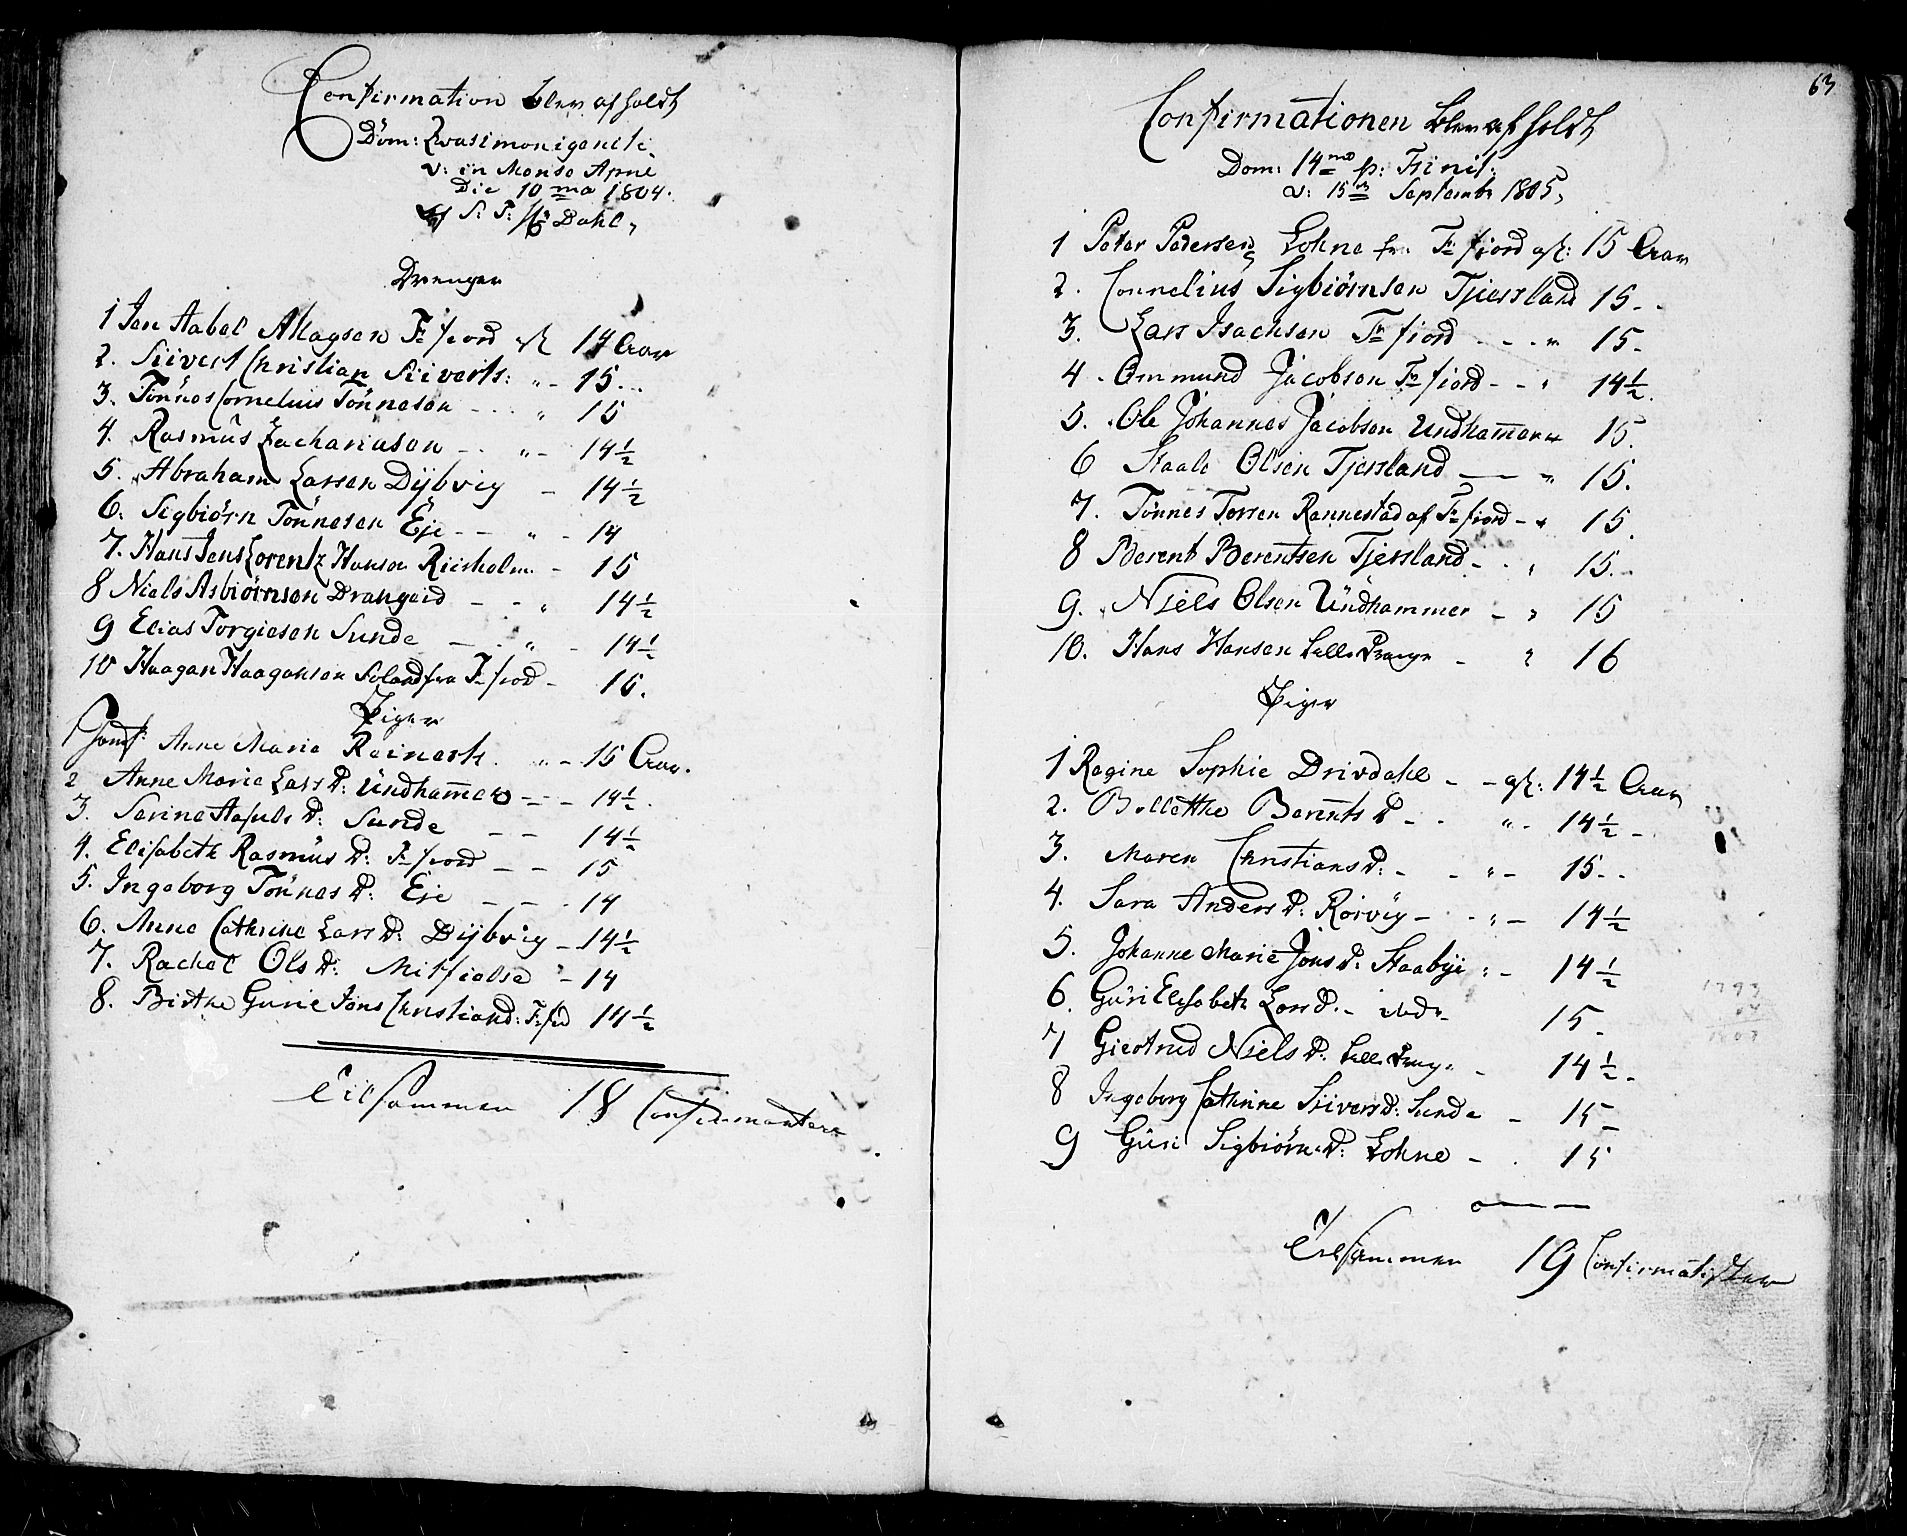 Confirmation blev afholdt
Dom: Qvasimonigeniti
v: in Monso Aprile
Die 10 ma 1804.
af S: T: Hr Dahl,
Drenger
1 Jen Aabel Allagsen Fr fiord gl. 14 Aar
2. Siivert Christian Siiverts: " - 15 ...
3. Tönnes Cornelius Tönnesen - .. " 15
4. Rasmus Zachariasen - .. " - 14 1/2
5. Abraham Larsen Dybvig - 14 1/2
6. Sigbiörn Tönnesen Eje - - " - 14
7. Hans Jens Lorentz Hansen Riisholm - 15
8 Niels Asbiørnsen Drangeid - - " 14 1/2
9 Elias Torgiesen Sunde - . " - 14 1/2
10 Haagan Haagansen Soland fra Fr fiord - 16.
Piger
1 Jomf: Anne Marie Reinert. " - 15 Aar.
2 Anne Marie Lars D: Undhammer - - 14 1/2.
3. Serine Aasuls D: Sunde - - 14 1/2
4. Elisabeth Rasmus D: Fr fiord - - 15
5. Ingeborg Tönnes D: Eje - - 14
6. Anne Cathrine Lars D: Dybvig - 14 1/2
7. Rachel Ols D: Mitfielse - 14
8. Birthe Gurie Jens Christian D: Fr fiord 14 1/2
Tilsammen 18 Confirmantere
63
Confirmationen blev afholdt
Dom: 14 ma p: Trinit:
v: 15 de September 1805,
1 Peter Pedersen Lohne fr: Fr fiord gl: 15 Aar
2. Cornelius Sigbiörnsen Tjersland 15 - .
3. Lars Isachsen Fr fiord - - - " 15 -
4. Ommund Jacobsen Fr fiord - - " 14 1/2.
5. Ole Johannes Jacobsen Undhammer " 15.
6 Staale Olsen Tjersland - " 15.
7. Tönnes Torsen Rannestad af Fr fiord - " 15.
8 Berent Berentsen Tjersland - . " 15 ..
9. Niels Olsen Undhammer - " 15
10. Hans Hansen Lille Prange - " 16
Piger
1 Regine Sophie Drivdahl - - gl: 14 1/2 Aar
2. Bollethe Berents D - . " - 14 1/2 -
3. Maren Christians D: - - " - 15 - .
4. Sara Anders D: Rörvig - - " - 14 1/2
5. Johanne Marie Jens D: Staabye " - 14 1/2
6. Guri Elisabeth Lars D. - ibid - 15 -
7 Giertrud Niels D: Lille Prange - 14 1/2.
8 Ingeborg Cathrine Siivers D: Sunde - 15 -
9 Guri Sigbiörns D: Lohne - . 15
Tilsammen 19 Confirmatister